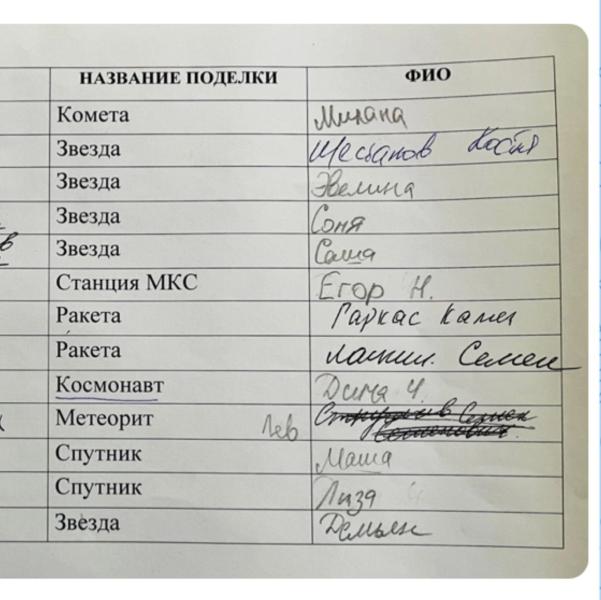 НАЗВАНИЕ ПОДЕЛКИ ФИО
Комета Милана
Звезда Шестаков Костя
Звезда Эвелина
Звезда Соня
Звезда Саша
Станция МКС Егор Н.
Ракета Гаркас
Ракета Семен
Космонавт Дина Ч.
Метеорит Лев
Спутник Маша
Спутник Лиза
Звезда Демьян